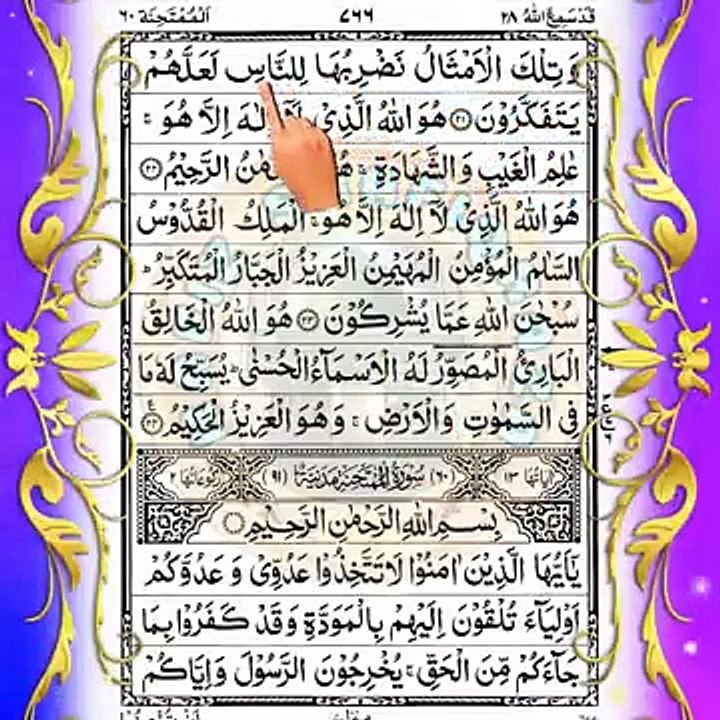 قَدْ سَمِعَ اللّٰهُ ٢٨ ٧٦٦ اَلْمُمْتَحِنَة ٦٠
وَتِلْكَ الْاَمْثَالُ نَضْرِبُهَا لِلنَّاسِ لَعَلَّهُمْ
يَتَفَكَّرُوْنَ ﴿٢١﴾ هُوَ اللّٰهُ الَّذِيْ لَاۤ اِلٰهَ اِلَّا هُوَ ۚ
عٰلِمُ الْغَيْبِ وَالشَّهَادَةِ ۚ الرَّحِيْمُ ﴿٢٢﴾
هُوَ اللّٰهُ الَّذِيْ لَاۤ اِلٰهَ اِلَّا هُوَ ۚ الْمَلِكُ الْقُدُّوْسُ
السَّلٰمُ الْمُؤْمِنُ الْمُهَيْمِنُ الْعَزِيْزُ الْجَبَّارُ الْمُتَكَبِّرُ ؕ
سُبْحٰنَ اللّٰهِ عَمَّا يُشْرِكُوْنَ ﴿٢٣﴾ هُوَ اللّٰهُ الْخَالِقُ
الْبَارِئُ الْمُصَوِّرُ لَهُ الْاَسْمَآءُ الْحُسْنٰى ؕ يُسَبِّحُ لَهٗ مَا
فِى السَّمٰوٰتِ وَالْاَرْضِ ۚ وَهُوَ الْعَزِيْزُ الْحَكِيْمُ ﴿٢٤﴾
اٰيَاتُهَا ١٣ (٦٠) سُوْرَةُ الْمُمْتَحِنَةِ مَدَنِيَّةٌ (٩١) رُكُوْعَاتُهَا ٢
بِسْمِ اللّٰهِ الرَّحْمٰنِ الرَّحِيْمِ
يٰۤاَيُّهَا الَّذِيْنَ اٰمَنُوْا لَا تَتَّخِذُوْا عَدُوِّيْ وَ عَدُوَّكُمْ
اَوْلِيَآءَ تُلْقُوْنَ اِلَيْهِمْ بِالْمَوَدَّةِ وَقَدْ كَفَرُوْا بِمَا
جَآءَكُمْ مِّنَ الْحَقِّ ۚ يُخْرِجُوْنَ الرَّسُوْلَ وَاِيَّاكُمْ